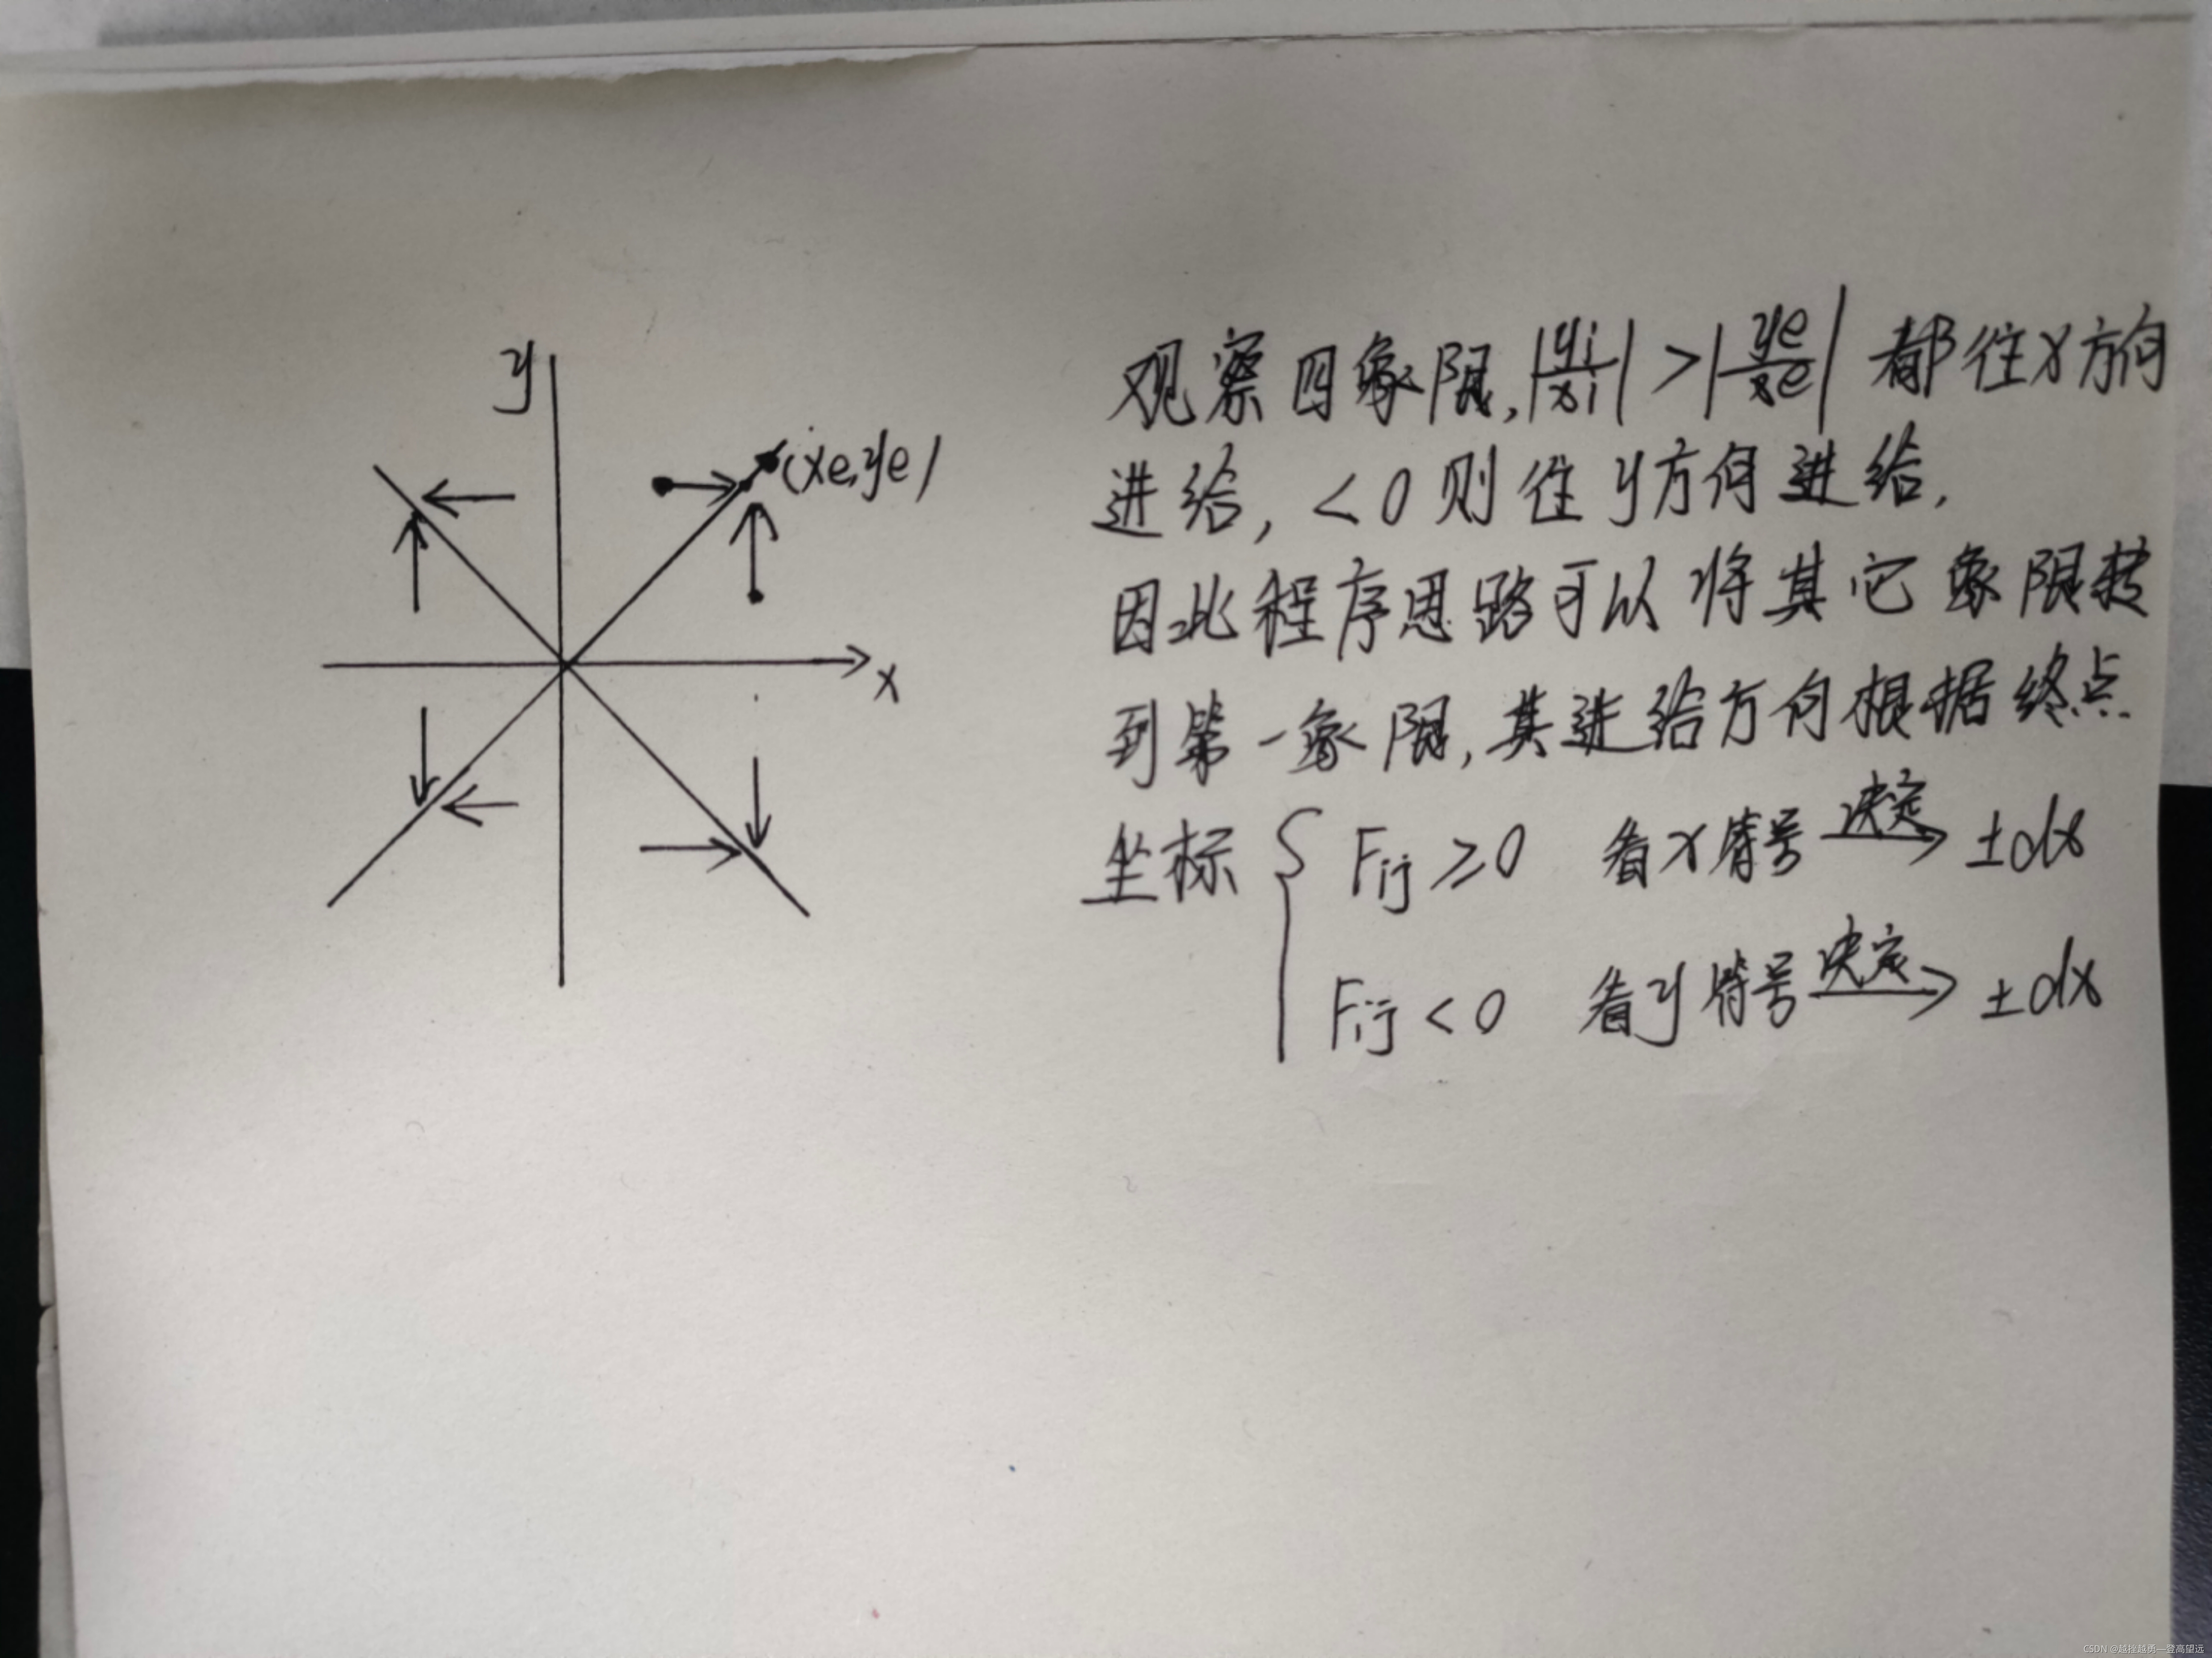 y
(xe,ye)
x
观察四象限,|yi/xi|>|ye/xe| 都往x方向
进给,<0则往y方向进给.
因此程序思路可以将其它象限转
到第一象限,其进给方向根据终点
坐标{ Fij≥0 看x符号 决定→ ±dx
Fij<0 看y符号 决定→ ±dx
CSDN @越挫越勇—登高望远